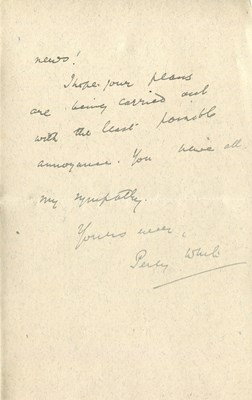 news!
I hope your plans
are being carried out
with the least possible
annoyance. You have all
my sympathy.
Yours ever,
Percy White